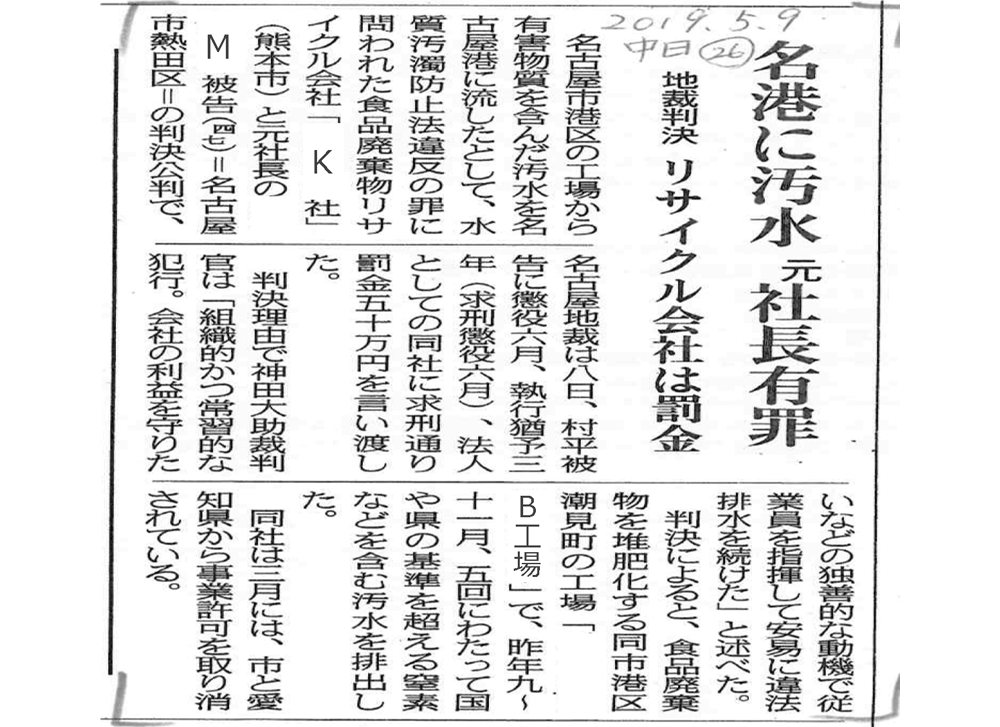 2019.5.9
中日 ㉖
名港に汚水 元社長有罪
地裁判決 リサイクル会社は罰金
名古屋市港区の工場から
有害物質を含んだ汚水を名
古屋港に流したとして、水
質汚濁防止法違反の罪に
問われた食品廃棄物リサ
イクル会社「K社」
(熊本市)と元社長の
M被告(四七)=名古屋
市熱田区=の判決公判で、
名古屋地裁は八日、村平被
告に懲役六月、執行猶予三
年(求刑懲役六月)、法人
としての同社に求刑通り
罰金五十万円を言い渡し
た。
判決理由で神田大助裁判
官は「組織的かつ常習的な
犯行。会社の利益を守りた
いなどの独善的な動機で従
業員を指揮して安易に違法
排水を続けた」と述べた。
判決によると、食品廃棄
物を堆肥化する同市港区
潮見町の工場「
B工場」で、昨年九〜
十一月、五回にわたって国
や県の基準を超える窒素
などを含む汚水を排出し
た。
同社は三月には、市と愛
知県から事業許可を取り消
されている。